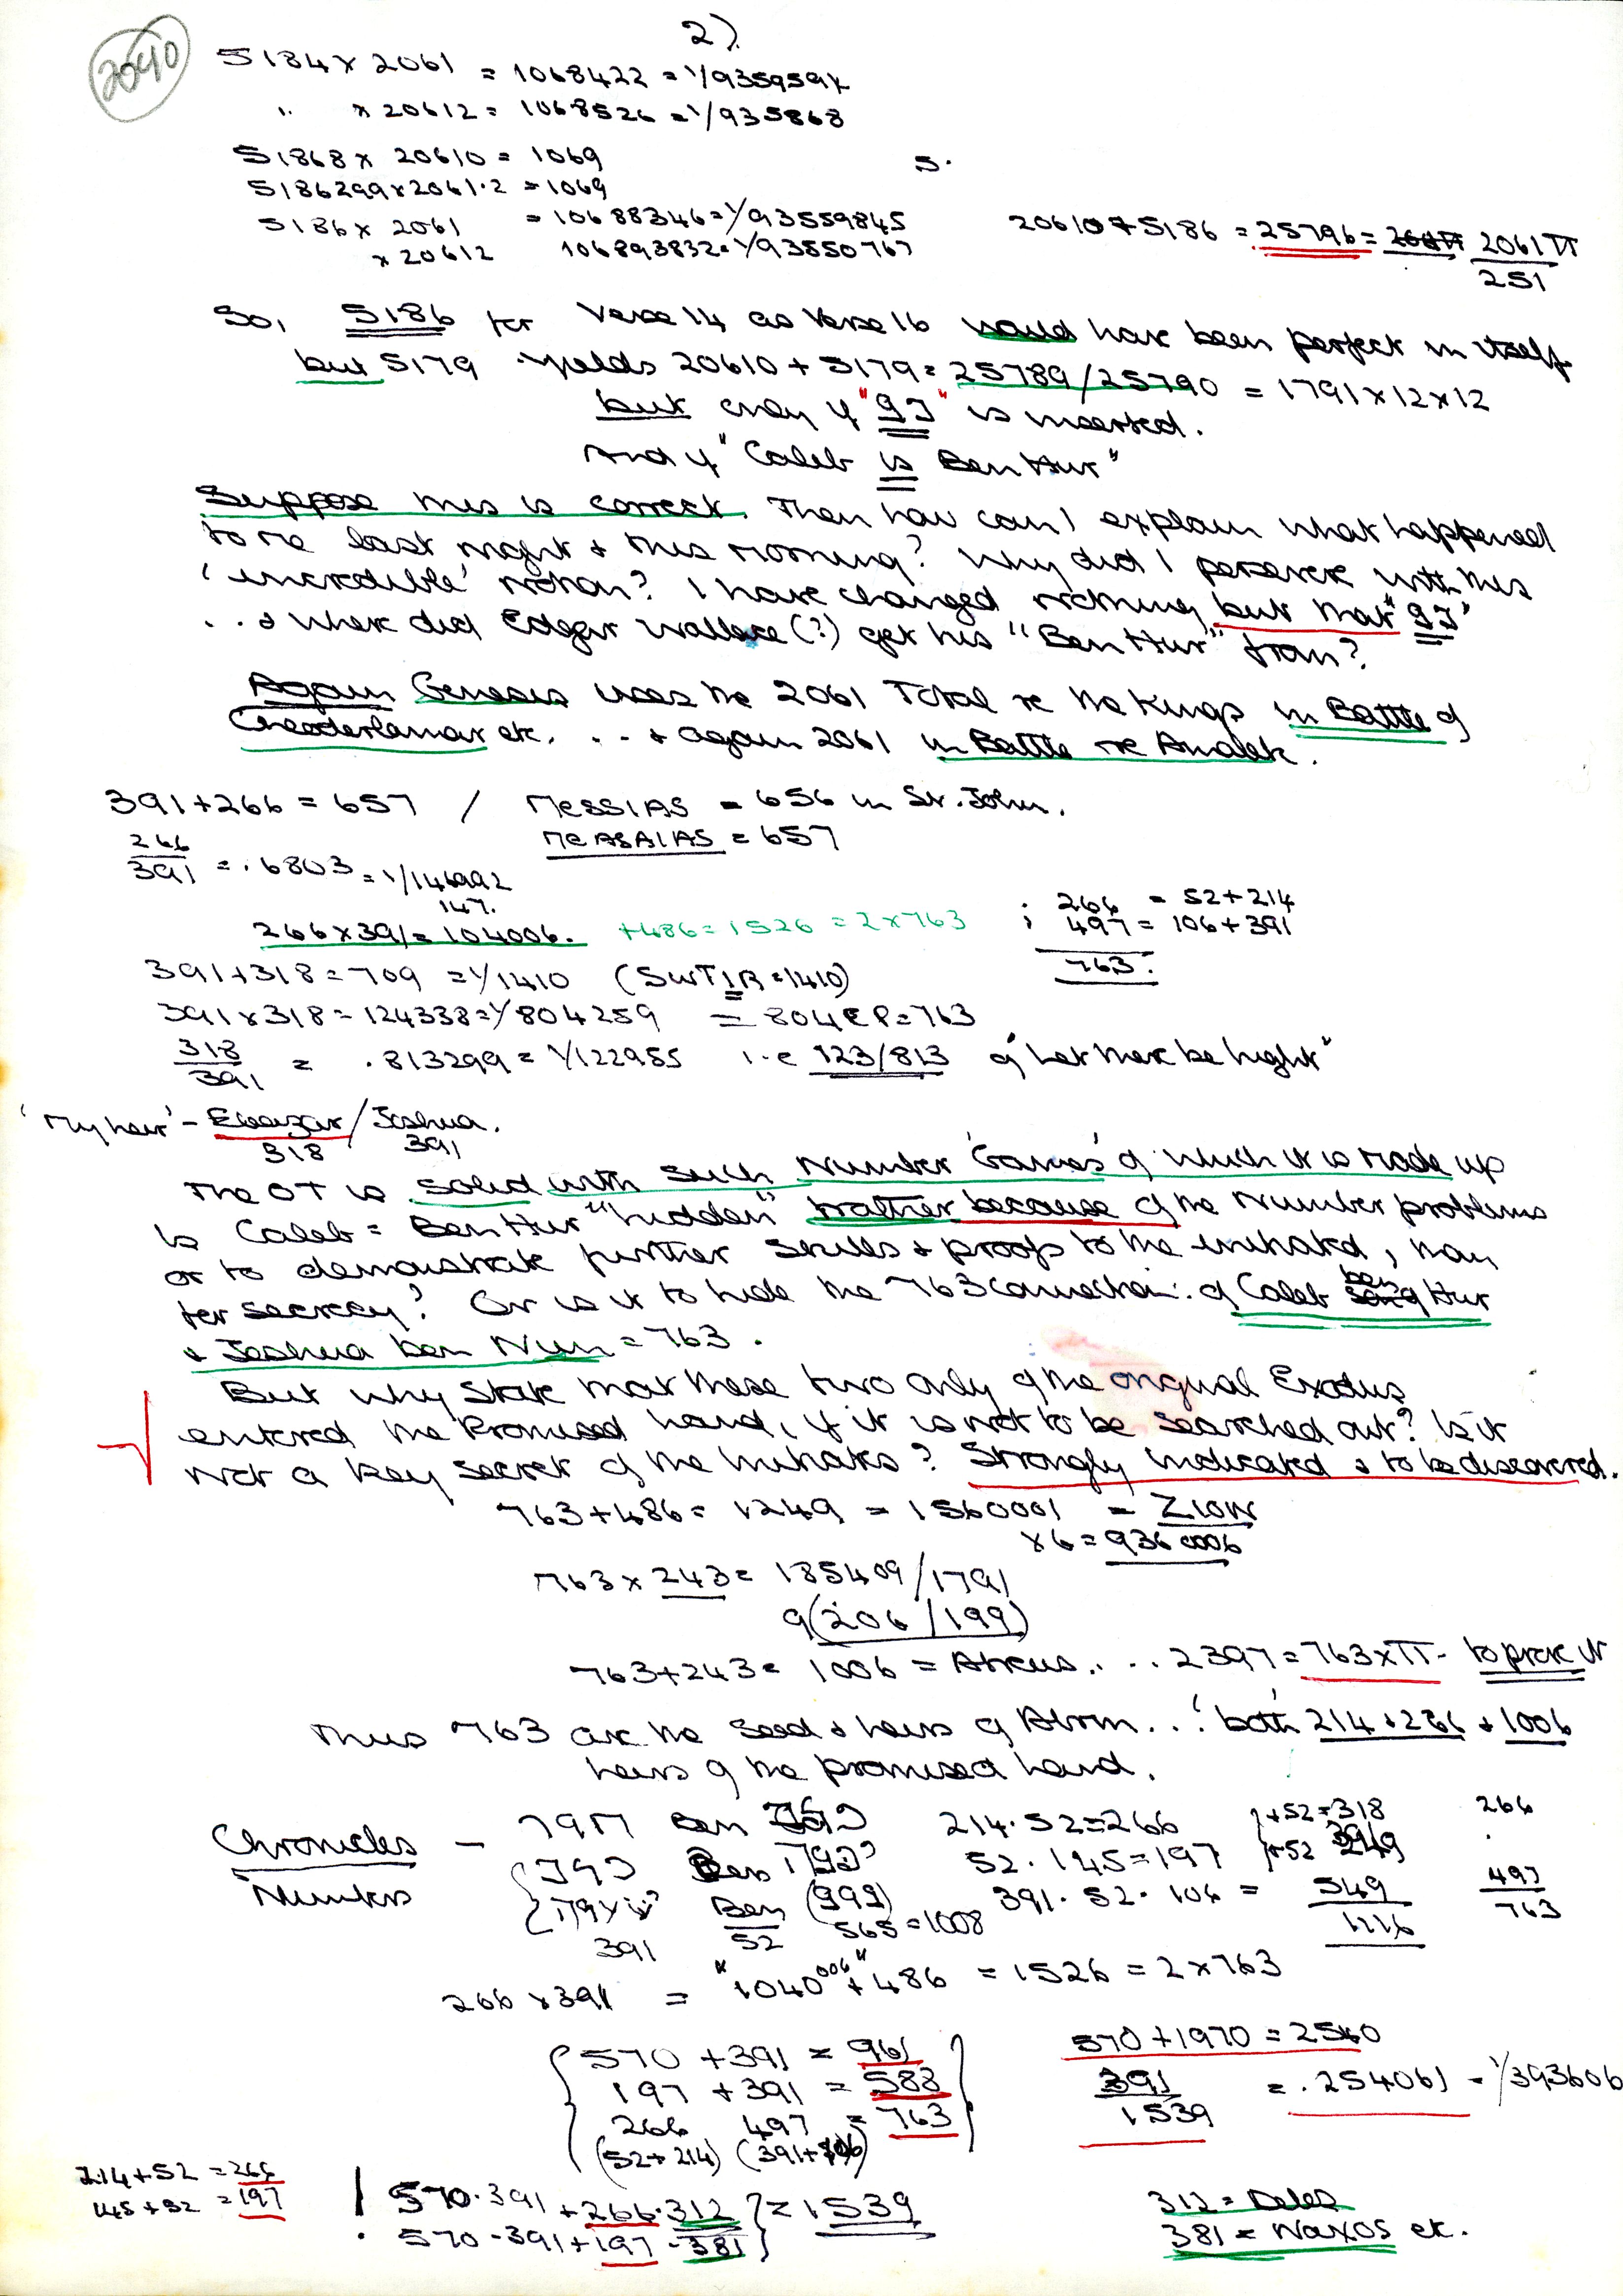 2040
2).
5184 x 2061 = 1068422 = 1/9359594
" x 20612 = 1068526 = 1/935868
51868 x 20610 = 1069
5.
5186299 x 2061.2 = 1069
5186 x 2061 = 10688346 = 1/93559845
x 20612 106893832 = 1/93550767
20610 + 5186 = 25796 = 2061π
251
So, 5186 for Verse 14 as Verse 16 would have been perfect in itself
but 5179 yields 20610 + 5179 = 25789/25790 = 1791 x 12 x 12
but only if " " is inserted.
And if "Caleb is Ben Hur"
Suppose this is correct. Then how can I explain what happened
to me last night & this morning? Why did I persevere with this
'incredible' notion? I have changed nothing but that " "
.. & where did Edgar Wallace (?) get his "Ben Hur" from?
Again Genesis uses the 2061 Total re the Kings in Battle of
Cheoderlamar etc. ... & again 2061 in Battle re Amalek.
391 + 266 = 657 / MESSIAS = 656 in St. John.
MEASAIAS = 657
266
391 = .6803 = 1/146992
147.
266 x 391 = 104006. + 486 = 1526 = 2 x 763
; 266 = 52 + 214
; 497 = 106 + 391
763.
391 + 318 = 709 = 1/1410 (SWTIR = 1410)
391 x 318 = 124338 = 1/804259 = 804 EP = 763
318
391 = .813299 = 1/122955 i.e 123/813 of "Let there be light"
'My heir' - Eleazar / Joshua.
318 391
The OT is solid with such 'Number Games' of which it is made up
Is Caleb = Ben Hur "hidden" rather because of the Number problems
or to demonstrate further skills & proofs to the initiated, than
for secrecy? Or is it to hide the 763 connection: of Caleb ben Hur
& Joshua ben Nun = 763.
But why state that these two only of the original Exodus
entered the Promised Land, if it is not to be searched out? Is it
not a key secret of the Initiates? Strongly indicated & to be discovered.
763 + 486 = 1249 = 1560001 = ZION
x 6 = 936 0006
763 x 243 = 185409/1791
9(206/199)
763 + 243 = 1006 = Atreus... 2397 = 763 x π - to prove it
Thus 763 are the seed & heirs of Abrm...! both 214 + 266 & 1006
heirs of the promised land.
Chronicles - Ben 214.52 = 266 } + 52 = 318 266
Ben 52.145 = 197 } + 52 249
Numbers Ben 391.52.106 = 549 497
391 52 565 = 1008 1216 763
266 x 391 = "1040006" + 486 = 1526 = 2 x 763
570 + 391 = 961
197 + 391 = 588
266 497 = 763
(52 + 214) (391 + 106)
570 + 1970 = 2540
391
1539 = .254061 = 1/393606
214 + 52 = 266
145 + 52 = 197
570.391 + 266.312 } = 1539
570.391 + 197.381
312 = Delos
381 = NAXOS etc.